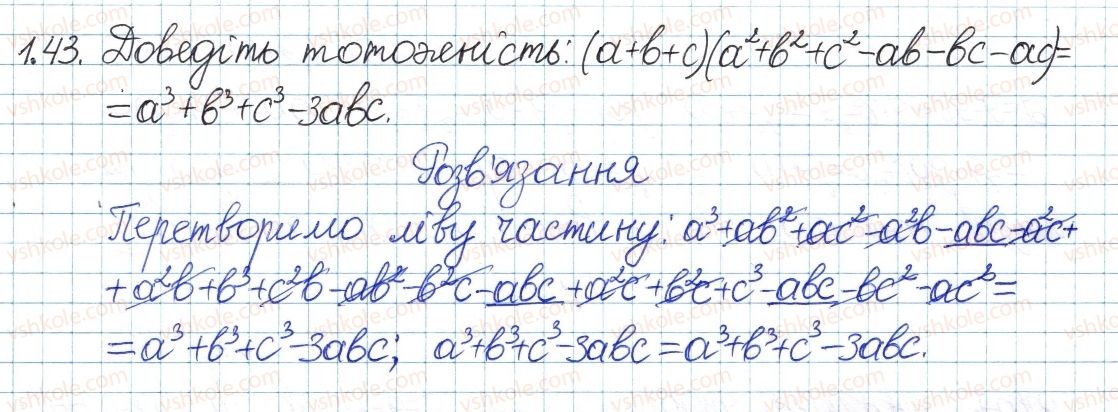 1.43. Доведіть тотожність: (a+b+c)(a²+b²+c²-ab-bc-ac)=
=a³+b³+c³-3abc.
Розв'язання
Перетворимо ліву частину: a³+ab²+ac²-a²b-abc-a²c+
+a²b+b³+c²b-ab²-b²c-abc+a²c+b²c+c³-abc-bc²-ac²=
=a³+b³+c³-3abc; a³+b³+c³-3abc=a³+b³+c³-3abc.